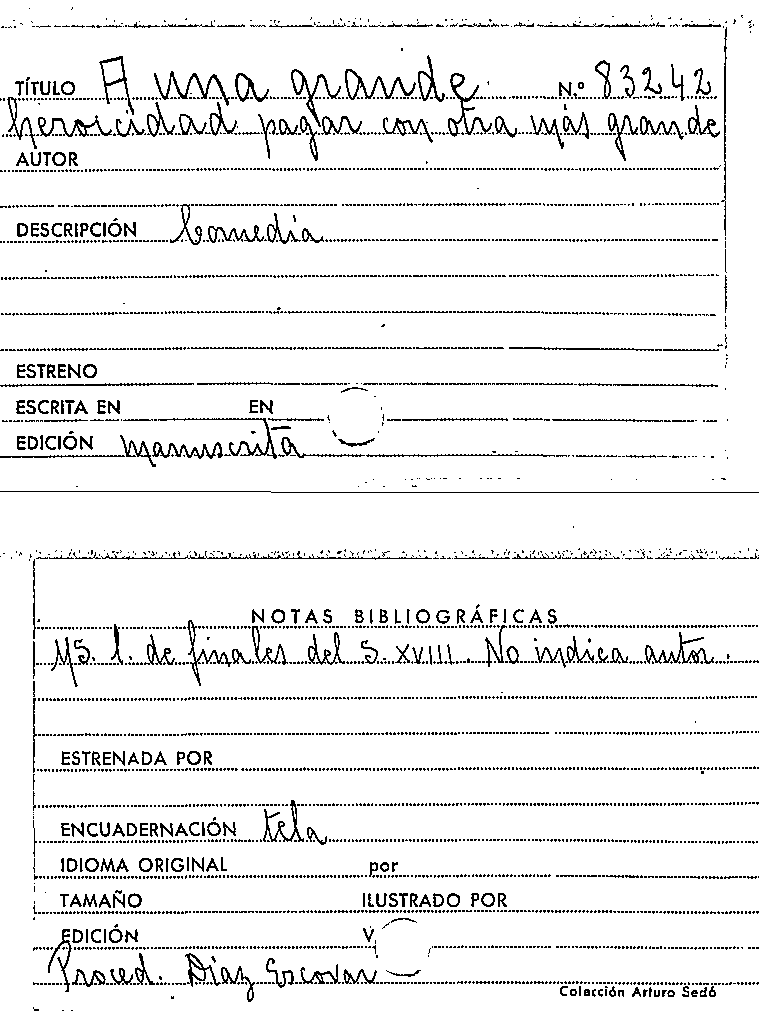 TÍTULO A una grande N.º 83242
heroicidad pagar con otra más grande
AUTOR
DESCRIPCIÓN Comedia
ESTRENO
ESCRITA EN EN
EDICIÓN manuscrita
NOTAS BIBLIOGRÁFICAS
MS. l. de finales del S. XVIII. No indica autor.
ESTRENADA POR
ENCUADERNACIÓN tela
IDIOMA ORIGINAL por
TAMAÑO ILUSTRADO POR
EDICIÓN V
Proced. Díaz Escovar
Colección Arturo Sedó